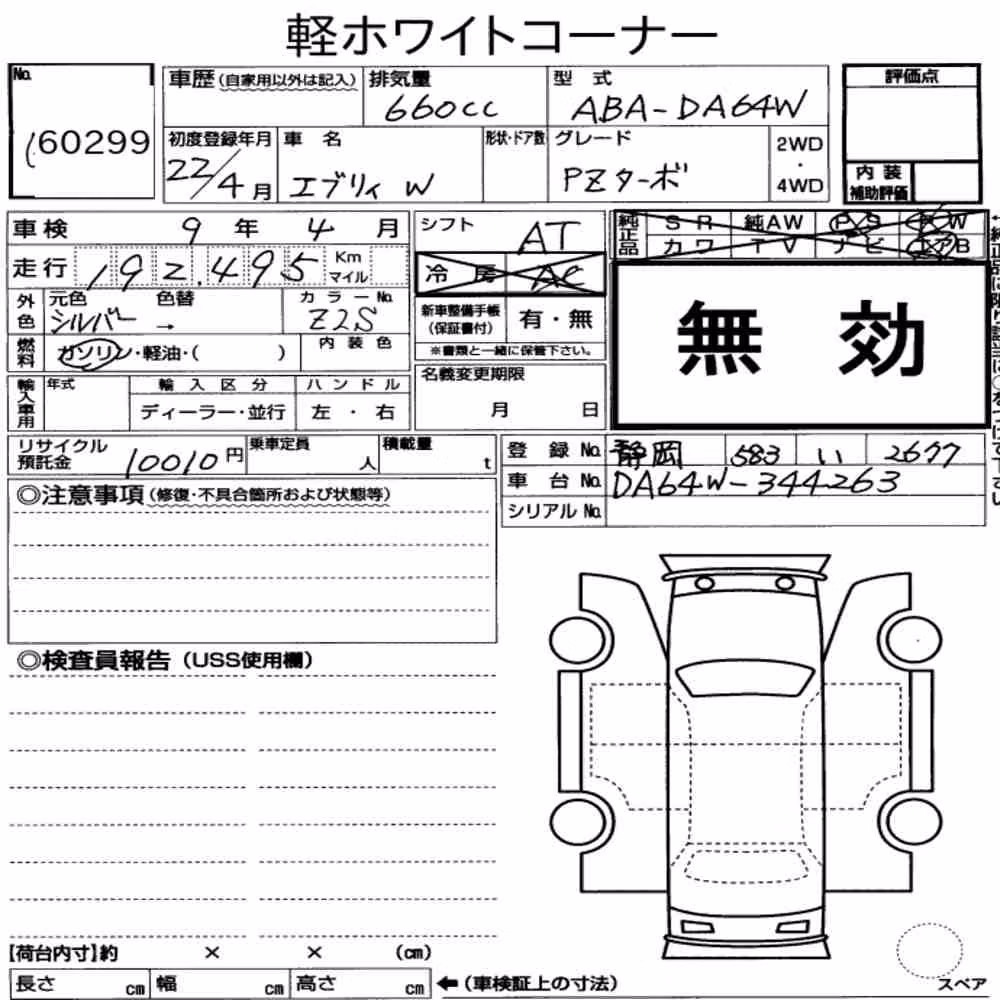 軽ホワイトコーナー
No. 60299
車歴(自家用以外は記入) 排気量 660cc 型式 ABA-DA64W 評価点
初度登録年月 22/4月 車名 エブリィ W 形状・ドア数 グレード PZターボ 2WD・4WD
内装補助評価
車検 9年 4月 シフト AT 純正品 SR 純AW PS PW
走行 192,495 Km マイル 冷房 AC カワ TV ナビ エアB
外色 元色 シルバー 色替 → カラーNo. Z2S 新車整備手帳(保証書付) 有・無
無効
燃料 ガソリン・軽油・( ) 内装色 ※書類と一緒に保管下さい。
輸入車用 年式 輸入区分 ハンドル 名義変更期限
ディーラー・並行 左・右 月 日
リサイクル預託金 10010円 乗車定員 人 積載量 t 登録No. 静岡 583 い 2677
車台No. DA64W-344263
◎注意事項(修復・不具合箇所および状態等) シリアルNo.
◎検査員報告(USS使用欄)
【荷台内寸】約 × × (cm)
長さ cm 幅 cm 高さ cm ←(車検証上の寸法) スペア